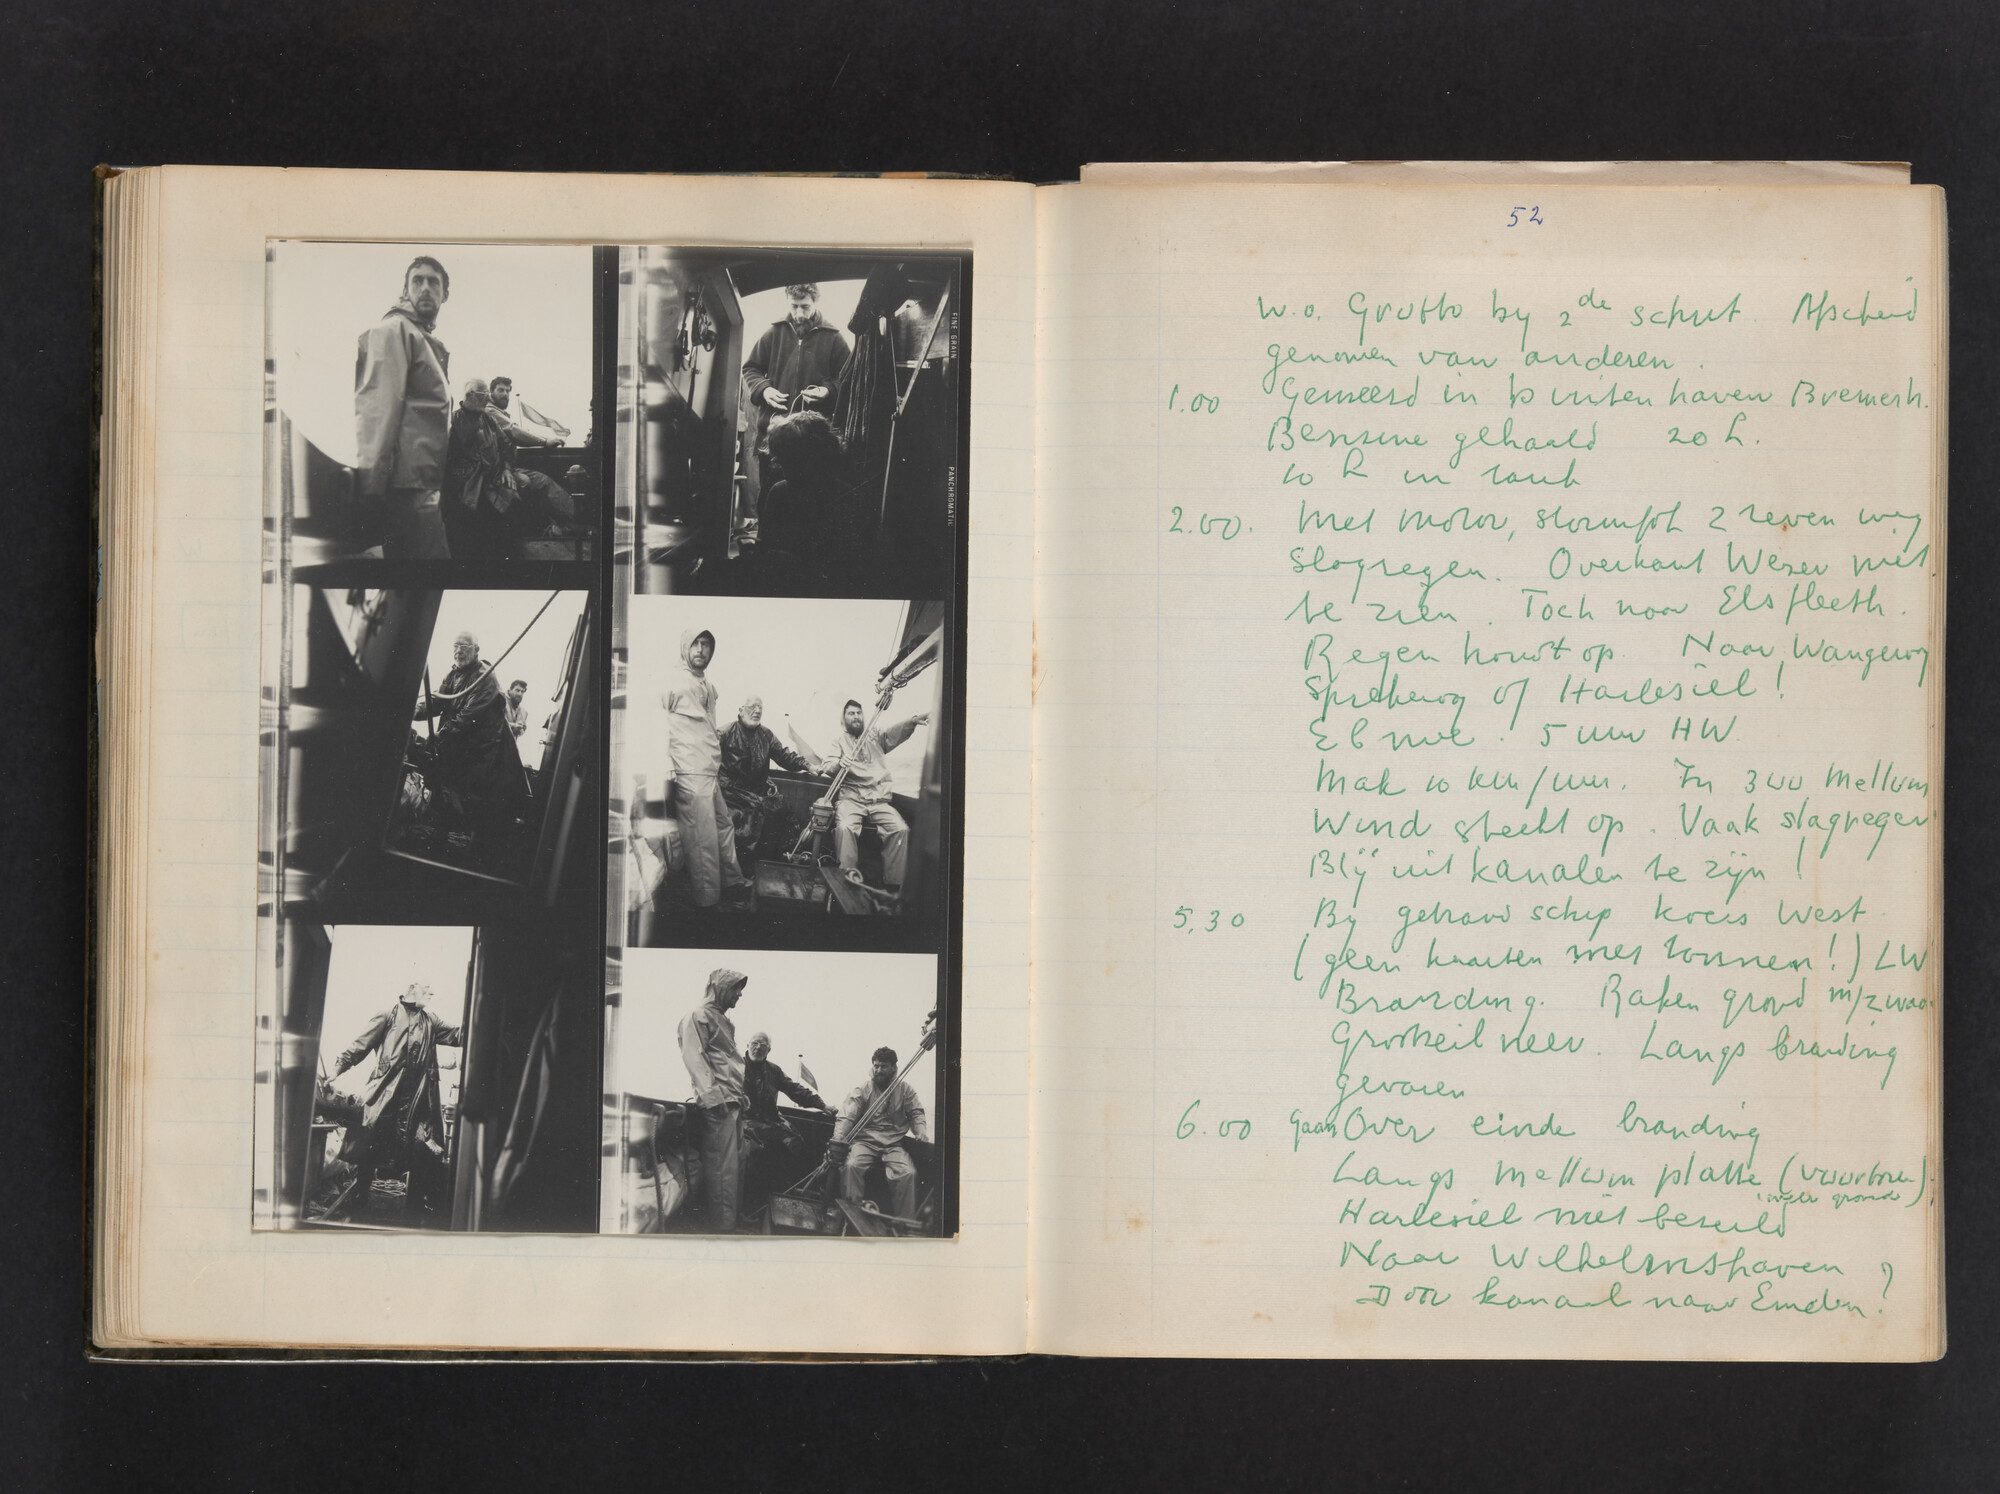 FINE GRAIN
PANCHROMATIC
52
w.o. Grutto by 2de schut. Afscheid
genomen van anderen.
1.00 Gemeerd in buitenhaven Bremerh.
Benzine gehaald 20 L.
10 L in tank
2.00. Met motor, stormfok 2 reven weg
Slagregen. Overkant Weser niet
te zien. Toch naar Elsfleeth.
Regen houdt op. Naar Wangeroog
Spiekeroog of Harlesiel!
Eb mee. 5 uur HW.
Mak 10 km/uur. In 300 Mellum
Wind steekt op. Vaak slagregen
Blij uit kanalen te zijn!
5.30 By gestrand schip koers West
(geen kaarten met tonnen!) LW
Branding. Raken grond m/zwaa
Grootzeil neer. Langs branding
gevaren
6.00 Gaan Over einde branding
Langs mellum platte (voorboven)
weer grond
Harlesiel niet bezeild
Naar Wilhelmshaven
Door kanaal naar Emden?